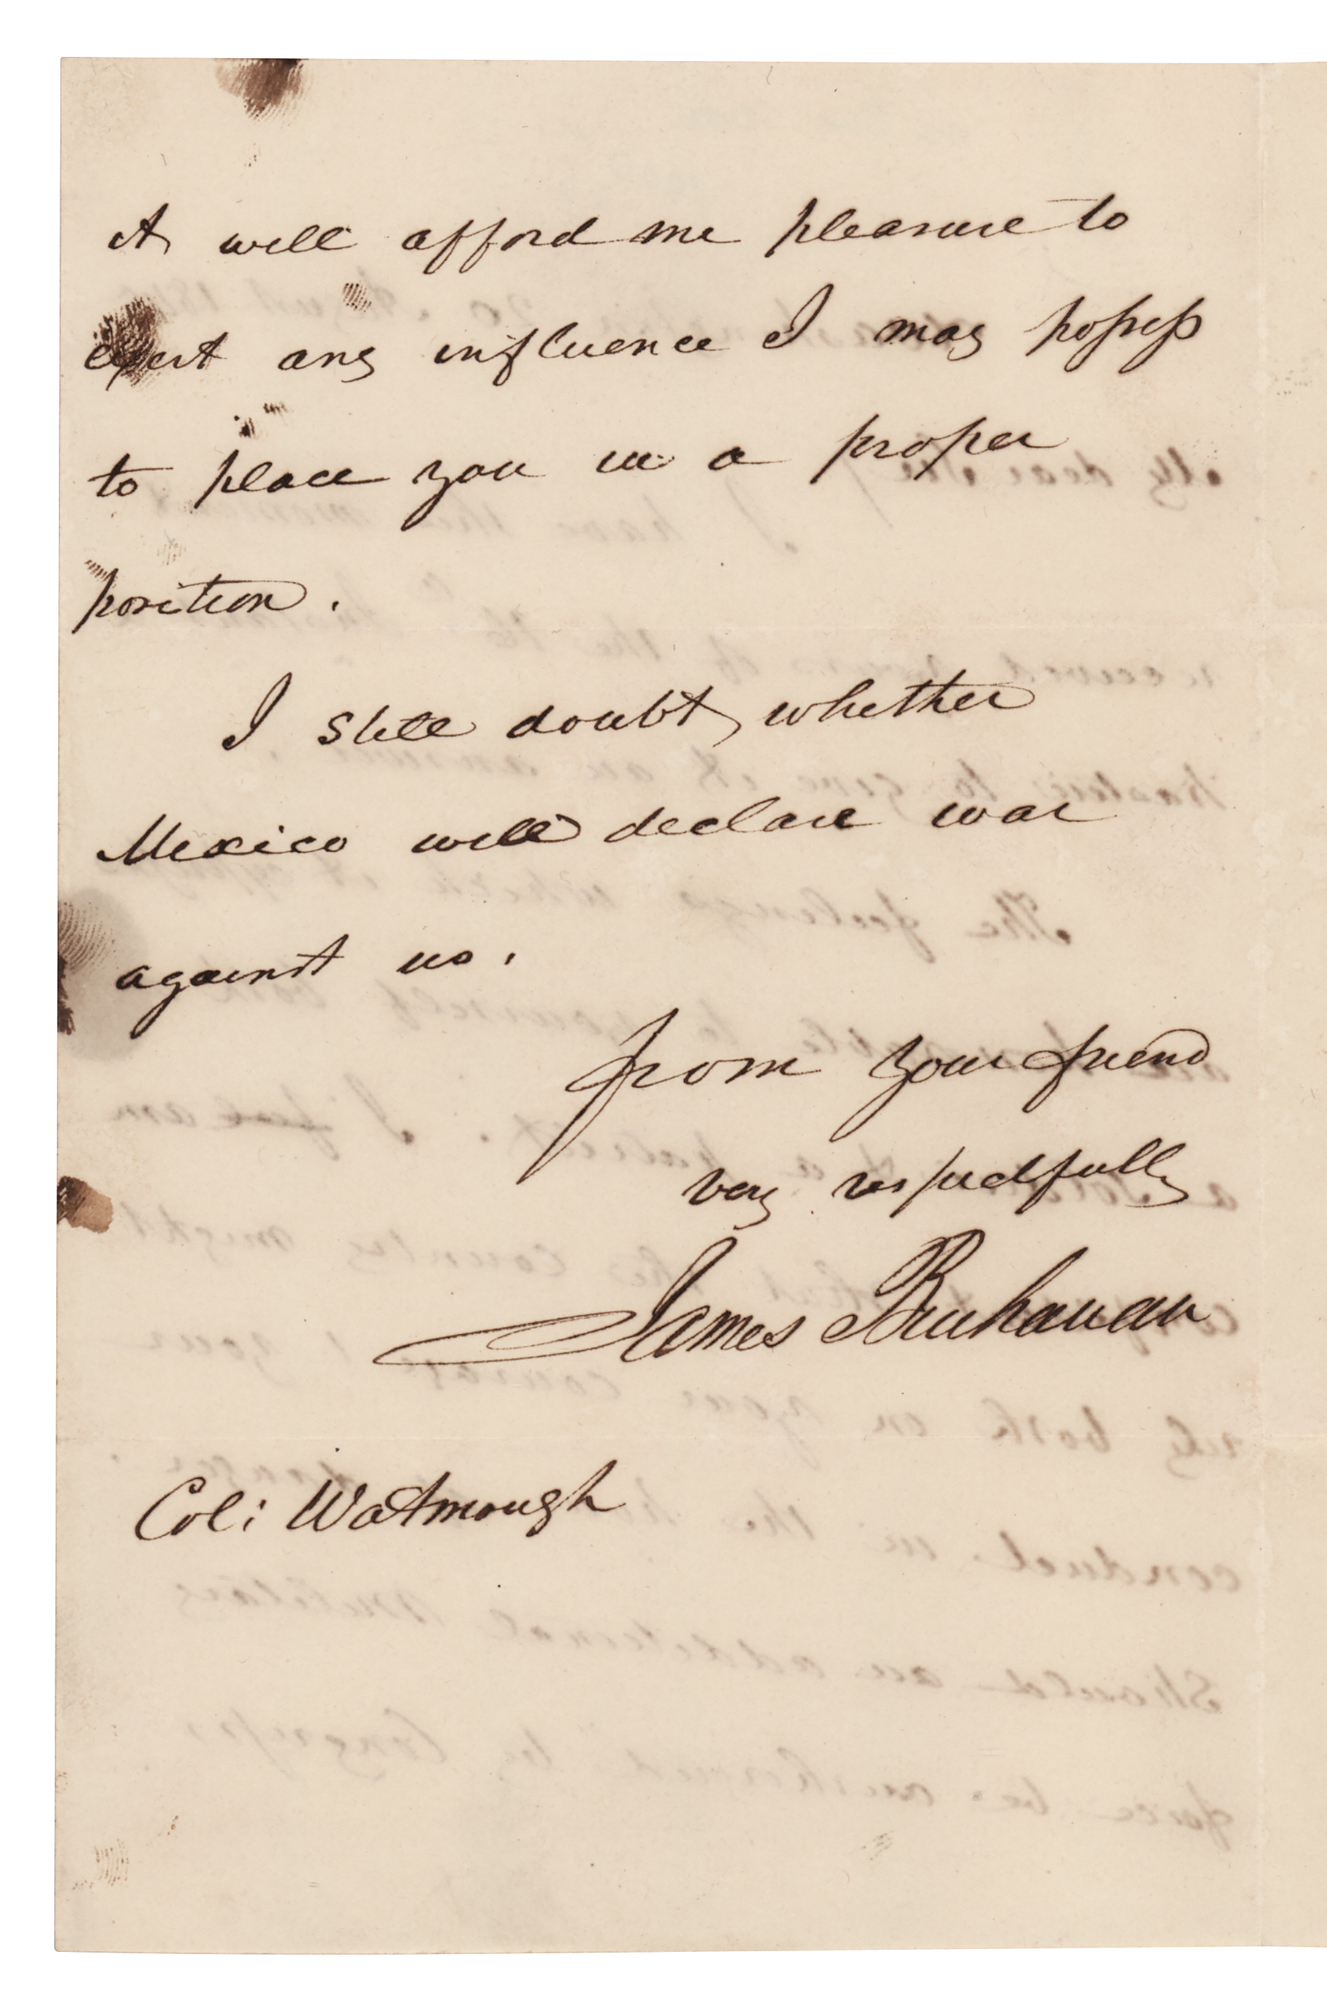 it will afford me pleasure to
exert any influence I may possess
to place you in a proper
position.
I still doubt, whether
Mexico will declare war
against us.
from your friend
very respectfully
James Buchanan
Col: Watmough